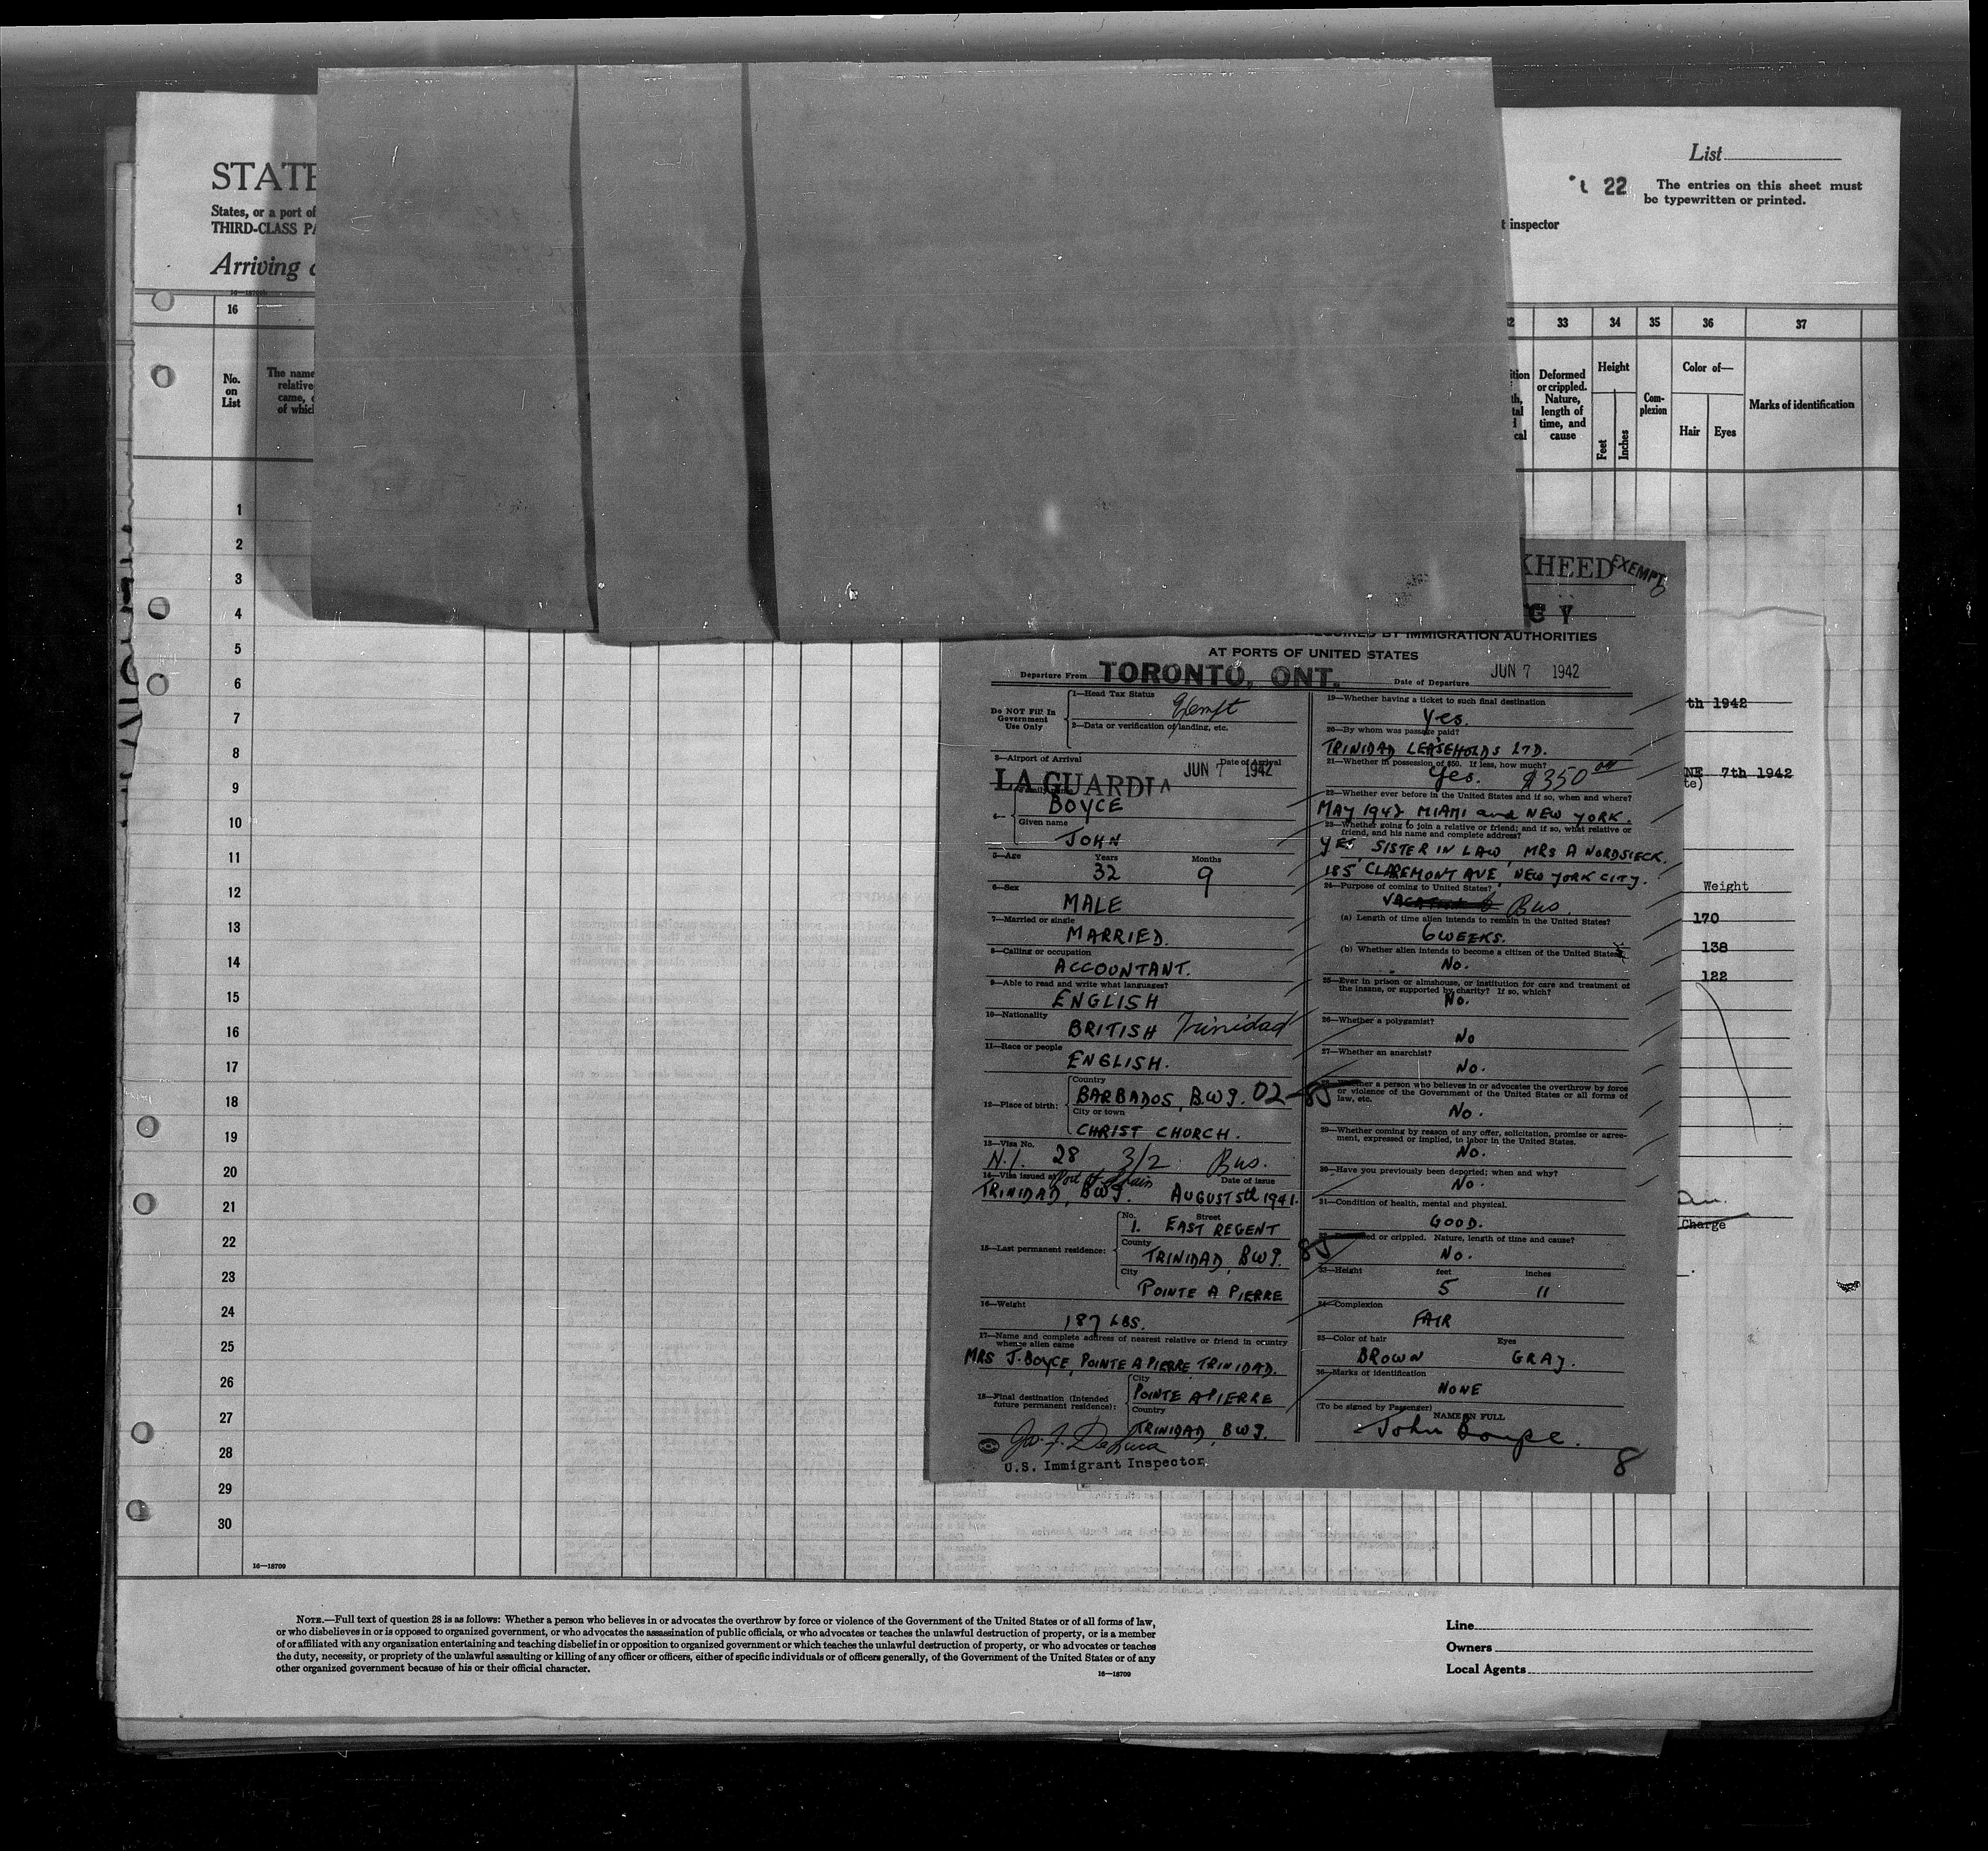 List
22
The entries on this sheet must
be typewritten or printed.
STATE
States, or a port of
THIRD-CLASS PA
inspector
Arriving
16
33
34
35
36
37
No.
on
List
The name
relative
came,
of which
Deformed
or crippled.
Nature,
length of
time, and
cause
Height
Feet
Inches
Com-
plexion
Color of—
Hair
Eyes
Marks of identification
1
2
3
4
5
6
7
8
9
10
11
12
13
14
15
16
17
18
19
20
21
22
23
24
25
26
27
28
29
30
16—18709
KHEED EXEMPT
G Y
REQUIRED BY IMMIGRATION AUTHORITIES
AT PORTS OF UNITED STATES
Departure From TORONTO, ONT. Date of Departure JUN 7 1942
Do NOT Fill In
Government
Use Only
1—Head Tax Status
Exempt
2—Data or verification of landing, etc.
3—Airport of Arrival Date of Arrival
LA GUARDIA JUN 7 1942
4—
Family name
BOYCE
Given name
JOHN
5—Age Years Months
32 9
6—Sex
MALE
7—Married or single
MARRIED.
8—Calling or occupation
ACCOUNTANT.
9—Able to read and write what languages?
ENGLISH
10—Nationality
BRITISH Trinidad
11—Race or people
ENGLISH.
12—Place of birth:
Country
BARBADOS, B.W.I. 02-85
City or town
CHRIST CHORCH.
13—Visa No.
N.I. 28 3/2 Bus.
14—Visa issued at Port of Spain Date of issue
TRINIDAD, BWI. AUGUST 5th 1941.
15—Last permanent residence:
No. Street
1. EAST REGENT
County
TRINIDAD, BWI.
City
POINTE A PIERRE
16—Weight
187 LBS.
17—Name and complete address of nearest relative or friend in country
whence alien came
MRS J. BOYCE, POINTE A PIERRE TRINIDAD.
18—Final destination (Intended
future permanent residence):
City
POINTE A PIERRE
Country
TRINIDAD, BWI.
Jo. F. DeLuca
U.S. Immigrant Inspector.
19—Whether having a ticket to such final destination
Yes.
20—By whom was passage paid?
TRINIDAD LEASEHOLDS LTD.
21—Whether in possession of $50. If less, how much?
Yes. $350 00
22—Whether ever before in the United States and if so, when and where?
MAY 1942, MIAMI and NEW YORK.
23—Whether going to join a relative or friend; and if so, what relative or
friend, and his name and complete address?
YES SISTER IN LAW, MRS A NORDSIECK.
185 CLAREMONT AVE, NEW YORK CITY.
24—Purpose of coming to United States?
Bus.
(a) Length of time alien intends to remain in the United States?
6 WEEKS.
(b) Whether alien intends to become a citizen of the United States
No.
25—Ever in prison or almshouse, or institution for care and treatment of
the insane, or supported by charity? If so, which?
No.
26—Whether a polygamist?
No
27—Whether an anarchist?
No.
28—Whether a person who believes in or advocates the overthrow by force
or violence of the Government of the United States or all forms of
law, etc.
No.
29—Whether coming by reason of any offer, solicitation, promise or agree-
ment, expressed or implied, to labor in the United States.
No.
30—Have you previously been deported; when and why?
No.
31—Condition of health, mental and physical.
GOOD.
85
32—Deformed or crippled. Nature, length of time and cause?
No.
33—Height feet inches
5 11
34—Complexion
FAIR
35—Color of hair Eyes
BROWN GRAY.
36—Marks of identification
NONE
(To be signed by Passenger) NAME IN FULL
John Boyce.
8
th 1942
NE 7th 1942
te)
Weight
170
138
122
Charge
NOTE.—Full text of question 28 is as follows: Whether a person who believes in or advocates the overthrow by force or violence of the Government of the United States or of all forms of law,
or who disbelieves in or is opposed to organized government, or who advocates the assassination of public officials, or who advocates or teaches the unlawful destruction of property, or is a member
of or affiliated with any organization entertaining and teaching disbelief in or opposition to organized government or which teaches the unlawful destruction of property, or who advocates or teaches
the duty, necessity, or propriety of the unlawful assaulting or killing of any officer or officers, either of specific individuals or of officers generally, of the Government of the United States or of any
other organized government because of his or their official character.
16—18709
Line
Owners
Local Agents